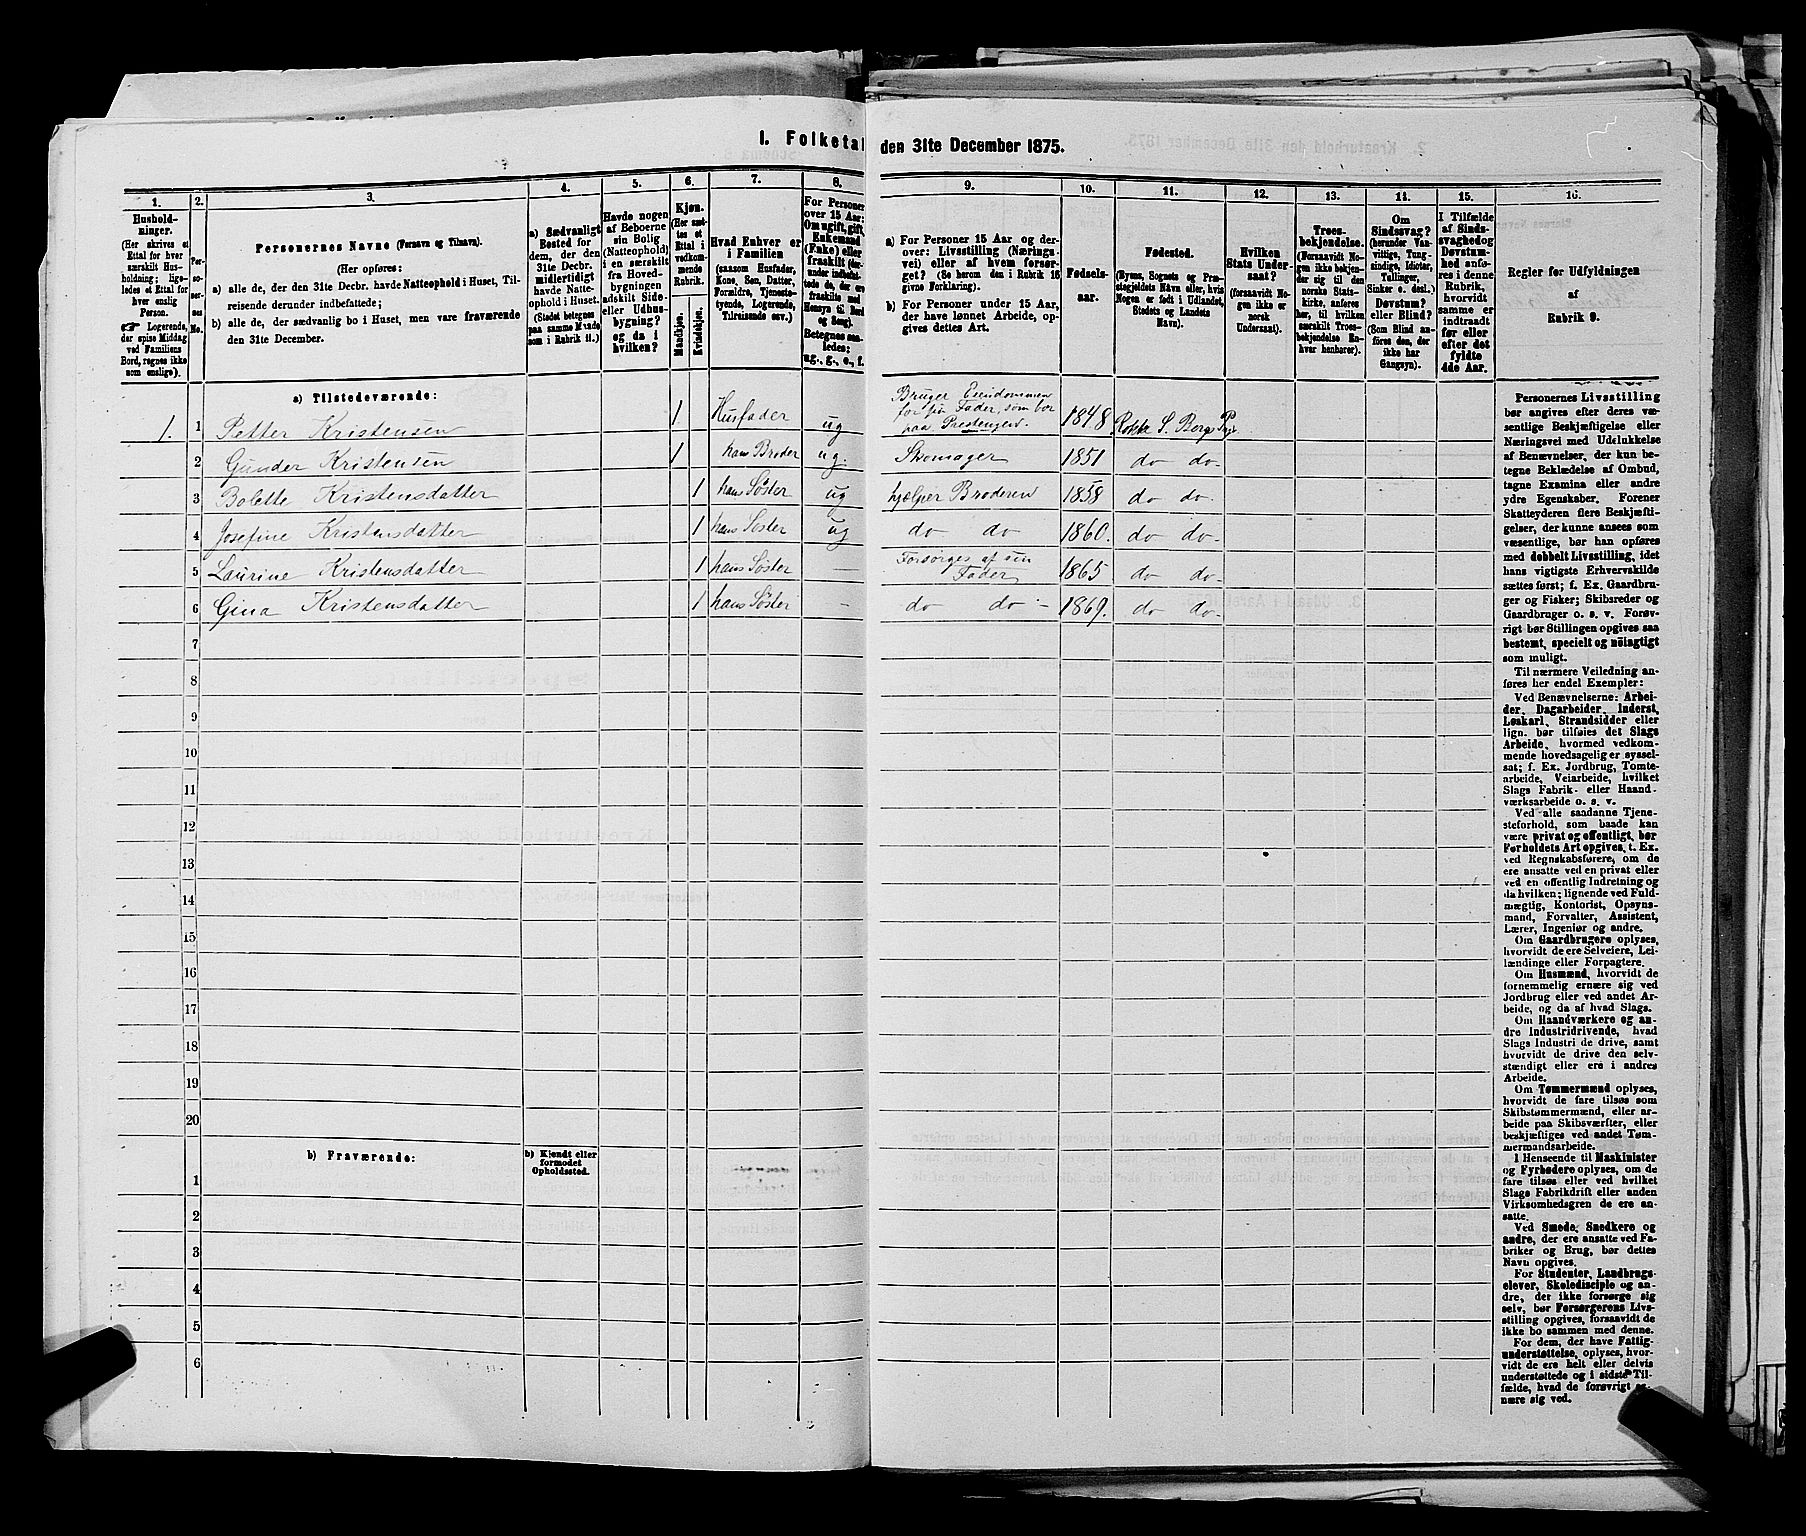 I. Folketal den 31te December 1875.
1. 2. 3. 4. 5. 6. 7. 8. 9. 10. 11. 12. 13. 14. 15. 16.
Hushold-
ninger.
(Her skrives et
Ettal for hver
særskilt Hus-
holdning; lige-
ledes et Ettal for
hver enslig
Person.
☞ Logerende,
der spise Middag
ved Familiens
Bord, regnes ikke
som enslige).
Per-
so-
ner-
nes
No.
Personernes Navne (Fornavn og Tilnavn).
(Her opføres:
a) alle de, der den 31te Decbr. havde Natteophold i Huset, Til-
reisende derunder indbefattede;
b) alle de, der sædvanlig bo i Huset, men vare fraværende
den 31te December.
a) Sædvanligt
Bosted for
dem, der den
31te Decbr.
midlertidigt
havde Natte-
ophold i Huset.
(Stedet betegnes
paa samme Maade
som i Rubrik 11.)
Havde nogen
af Beboerne
sin Bolig
(Natteophold)
i en særskilt
fra Hoved-
bygningen
adskilt Side-
eller Udhus-
bygning?
og da i
hvilken?
Kjøn.
(Her sæt-
tes et
Ettal i
vedkom-
mende
Rubrik.
Mandkjøn. Kvindekjøn.
Hvad Enhver er
i Familien
(saasom Husfader,
Kone, Søn, Datter,
Forældre, Tjeneste-
tyende, Logerende,
Tilreisende osv.)
For Personer
over 15 Aar:
Om ugift, gift,
Enkemand
(Enke) eller
fraskilt
Betegnes saa-
ledes:
ug., g., e., f.
a) For Personer 15 Aar og der-
over: Livsstilling (Nærings-
vei) eller af hvem forsør-
get? (Se herom den i Rubrik 16
givne Forklaring).
b) For Personer under 15 Aar,
der have lønnet Arbeide, op-
gives dettes Art.
Fødsels-
aar.
Fødested.
(Byens, Sognets og Præ-
stegjeldets Navn eller, hvis
Nogen er født i Udlandet,
Stedets og Landets
Navn).
Hvilken
Stats Under-
saat?
(forsaavidt No-
gen ikke er
norsk
Undersaat).
Troes-
bekjendelse.
(Forsaavidt No-
gen ikke bekjen-
der sig til den
norske Stats-
kirke, anføres
her, til hvilken
særskilt Troes-
bekjendelse En-
hver henhører).
Om
Sindssvag?
(herunder Van-
vittige, Tung-
sindige, Idioter,
Tullinger,
Sinker o. desl.)
Døvstum?
eller Blind?
(Som Blind an-
føres den, der
ikke har
Gangsyn).
I Tilfælde
af Sinds-
svaghed og
Døvstum-
hed anfø-
res i denne
Rubrik,
hvorvidt
samme er
indtraadt
før eller
efter det
fyldte
4de Aar.
Regler for Udfyldningen
af
Rubrik 9.
a) Tilstedeværende:
1. 1 Petter Kristensen 1 Husfader ug Bruger Eiendommen for sin Fader, som bor paa Prestengen. 1848 Rokke S. Berg Pgj.
2 Gunder Kristensen 1 hans Broder ug. Skomager 1851 do do
3 Bolette Kristensdatter 1 hans Søster ug hjælper Broderen 1858 do do
4 Josefine Kristensdatter 1 hans Søster ug do do 1860. do do
5 Laurine Kristensdatter 1 hans Søster — Forsørges af sin Fader 1865 do do
6 Gina Kristensdatter 1 hans Søster — do do 1869. do do
7
8
9
10
11
12
13
14
15
16
17
18
19
20
b) Fraværende:
b) Kjendt eller
formodet
Opholdssted.
1
2
3
4
5
6
Personernes Livsstilling
bør angives efter deres væ-
sentlige Beskjæftigelse eller
Næringsvei med Udelukkelse
af Benævnelser, der kun be-
tegne Beklædelse af Ombud,
tagne Examina eller andre
ydre Egenskaber. Forener
Skatteyderen flere Beskjæfti-
gelser, der kunne ansees som
væsentlige, bør han opføres
med dobbelt Livsstilling, idet
hans vigtigste Erhvervskilde
sættes først; f. Ex. Gaardbru-
ger og Fisker; Skibsreder og
Gaardbruger o. s. v. Forøv-
rigt bør Stillingen opgives saa
bestemt, specielt og nöiagtigt
som muligt.
Til nærmere Veiledning an-
føres her endel Exempler:
Ved Benævnelserne: Arbei-
der, Dagarbeider, Inderst,
Løskarl, Strandsidder eller
lign. bør tilføies det Slags
Arbeide, hvormed vedkom-
mende hovedsagelig er syssel-
sat; f. Ex. Jordbrug, Tomte-
arbeide, Veiarbeide, hvilket
Slags Fabrik- eller Haand-
værksarbeide o. s. v.
Ved alle saadanne Tjene-
steforhold, som baade kan
være privat og offentligt, bør
Forholdets Art opgives, t. Ex.
ved Regnskabsførere, om de
ere ansatte ved en privat eller
ved en offentlig Indretning og
da hvilken; lignende ved Fuld-
mægtig, Kontorist, Opsyns-
mand, Forvalter, Assistent,
Lærer, Ingeniør og andre.
Om Gaardbrugere oplyses,
hvorvidt de ere Selveiere, Lei-
lændinge eller Forpagtere.
Om Husmænd, hvorvidt de
fornemmelig ernære sig ved
Jordbrug eller ved andet Ar-
beide, og da af hvad Slags.
Om Haandværkere og an-
dre Industridrivende, hvad
Slags Industri de drive, samt
hvorvidt de drive den selv-
stændigt eller ere i andres
Arbeide.
Om Tømmermænd oplyses,
hvorvidt de fare tilsøs som
Skibstømmermænd, eller ar-
beide paa Skibsværfter, eller
beskjæftiges ved andet Tøm-
mermandsarbeide.
I Henseende til Maskinister
og Fyrbødere oplyses, om de
fare tilsøs eller ved hvilket
Slags Fabrikdrift eller anden
Virksomhedsgren de ere an-
satte.
Ved Smede, Snedkere og
andre, der ere ansatte ved Fa-
briker og Brug, bør dettes
Navn opgives.
For Studenter, Landbrugs-
elever, Skoledisciple og an-
dre, der ikke forsørge sig
selv, bør Forsørgerens Livs-
stilling opgives, forsaavidt de
ikke bo sammen med denne.
For dem, der have Fattig-
understøttelse, oplyses, hvor-
vidt de ere helt eller delvis
understøttede og i sidste Til-
fælde, hvad de forøvrigt er-
nære sig ved.